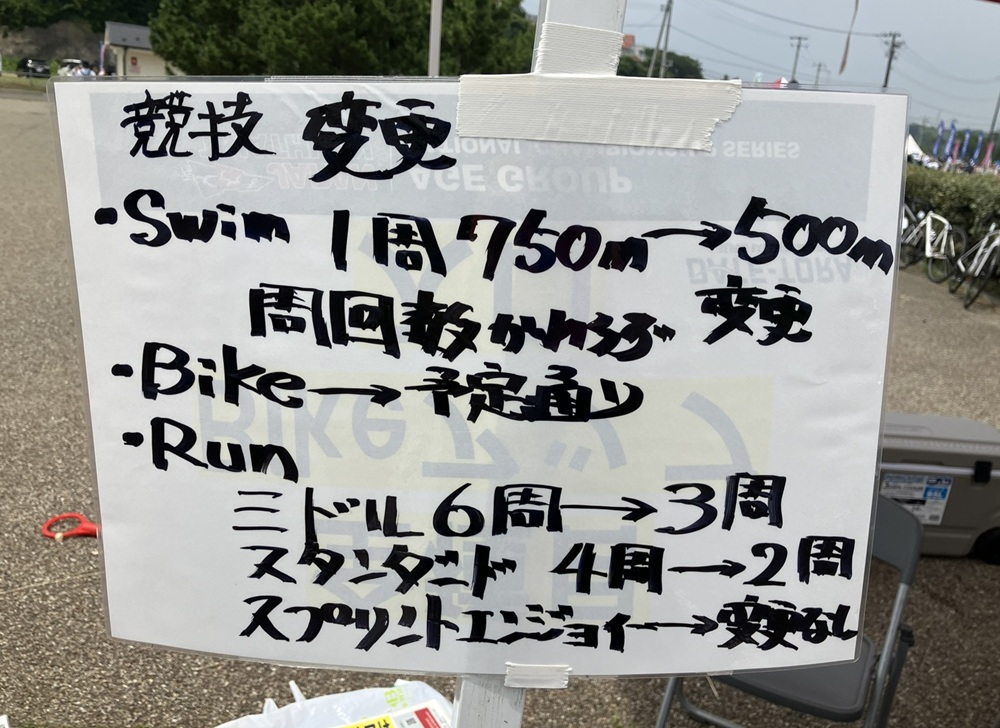 競技 変更
・Swim 1周750m→500m
周回数かわらず 変更
・Bike→予定通り
・Run
ミドル 6周→3周
スタンダード 4周→2周
スプリントエンジョイ→変更なし